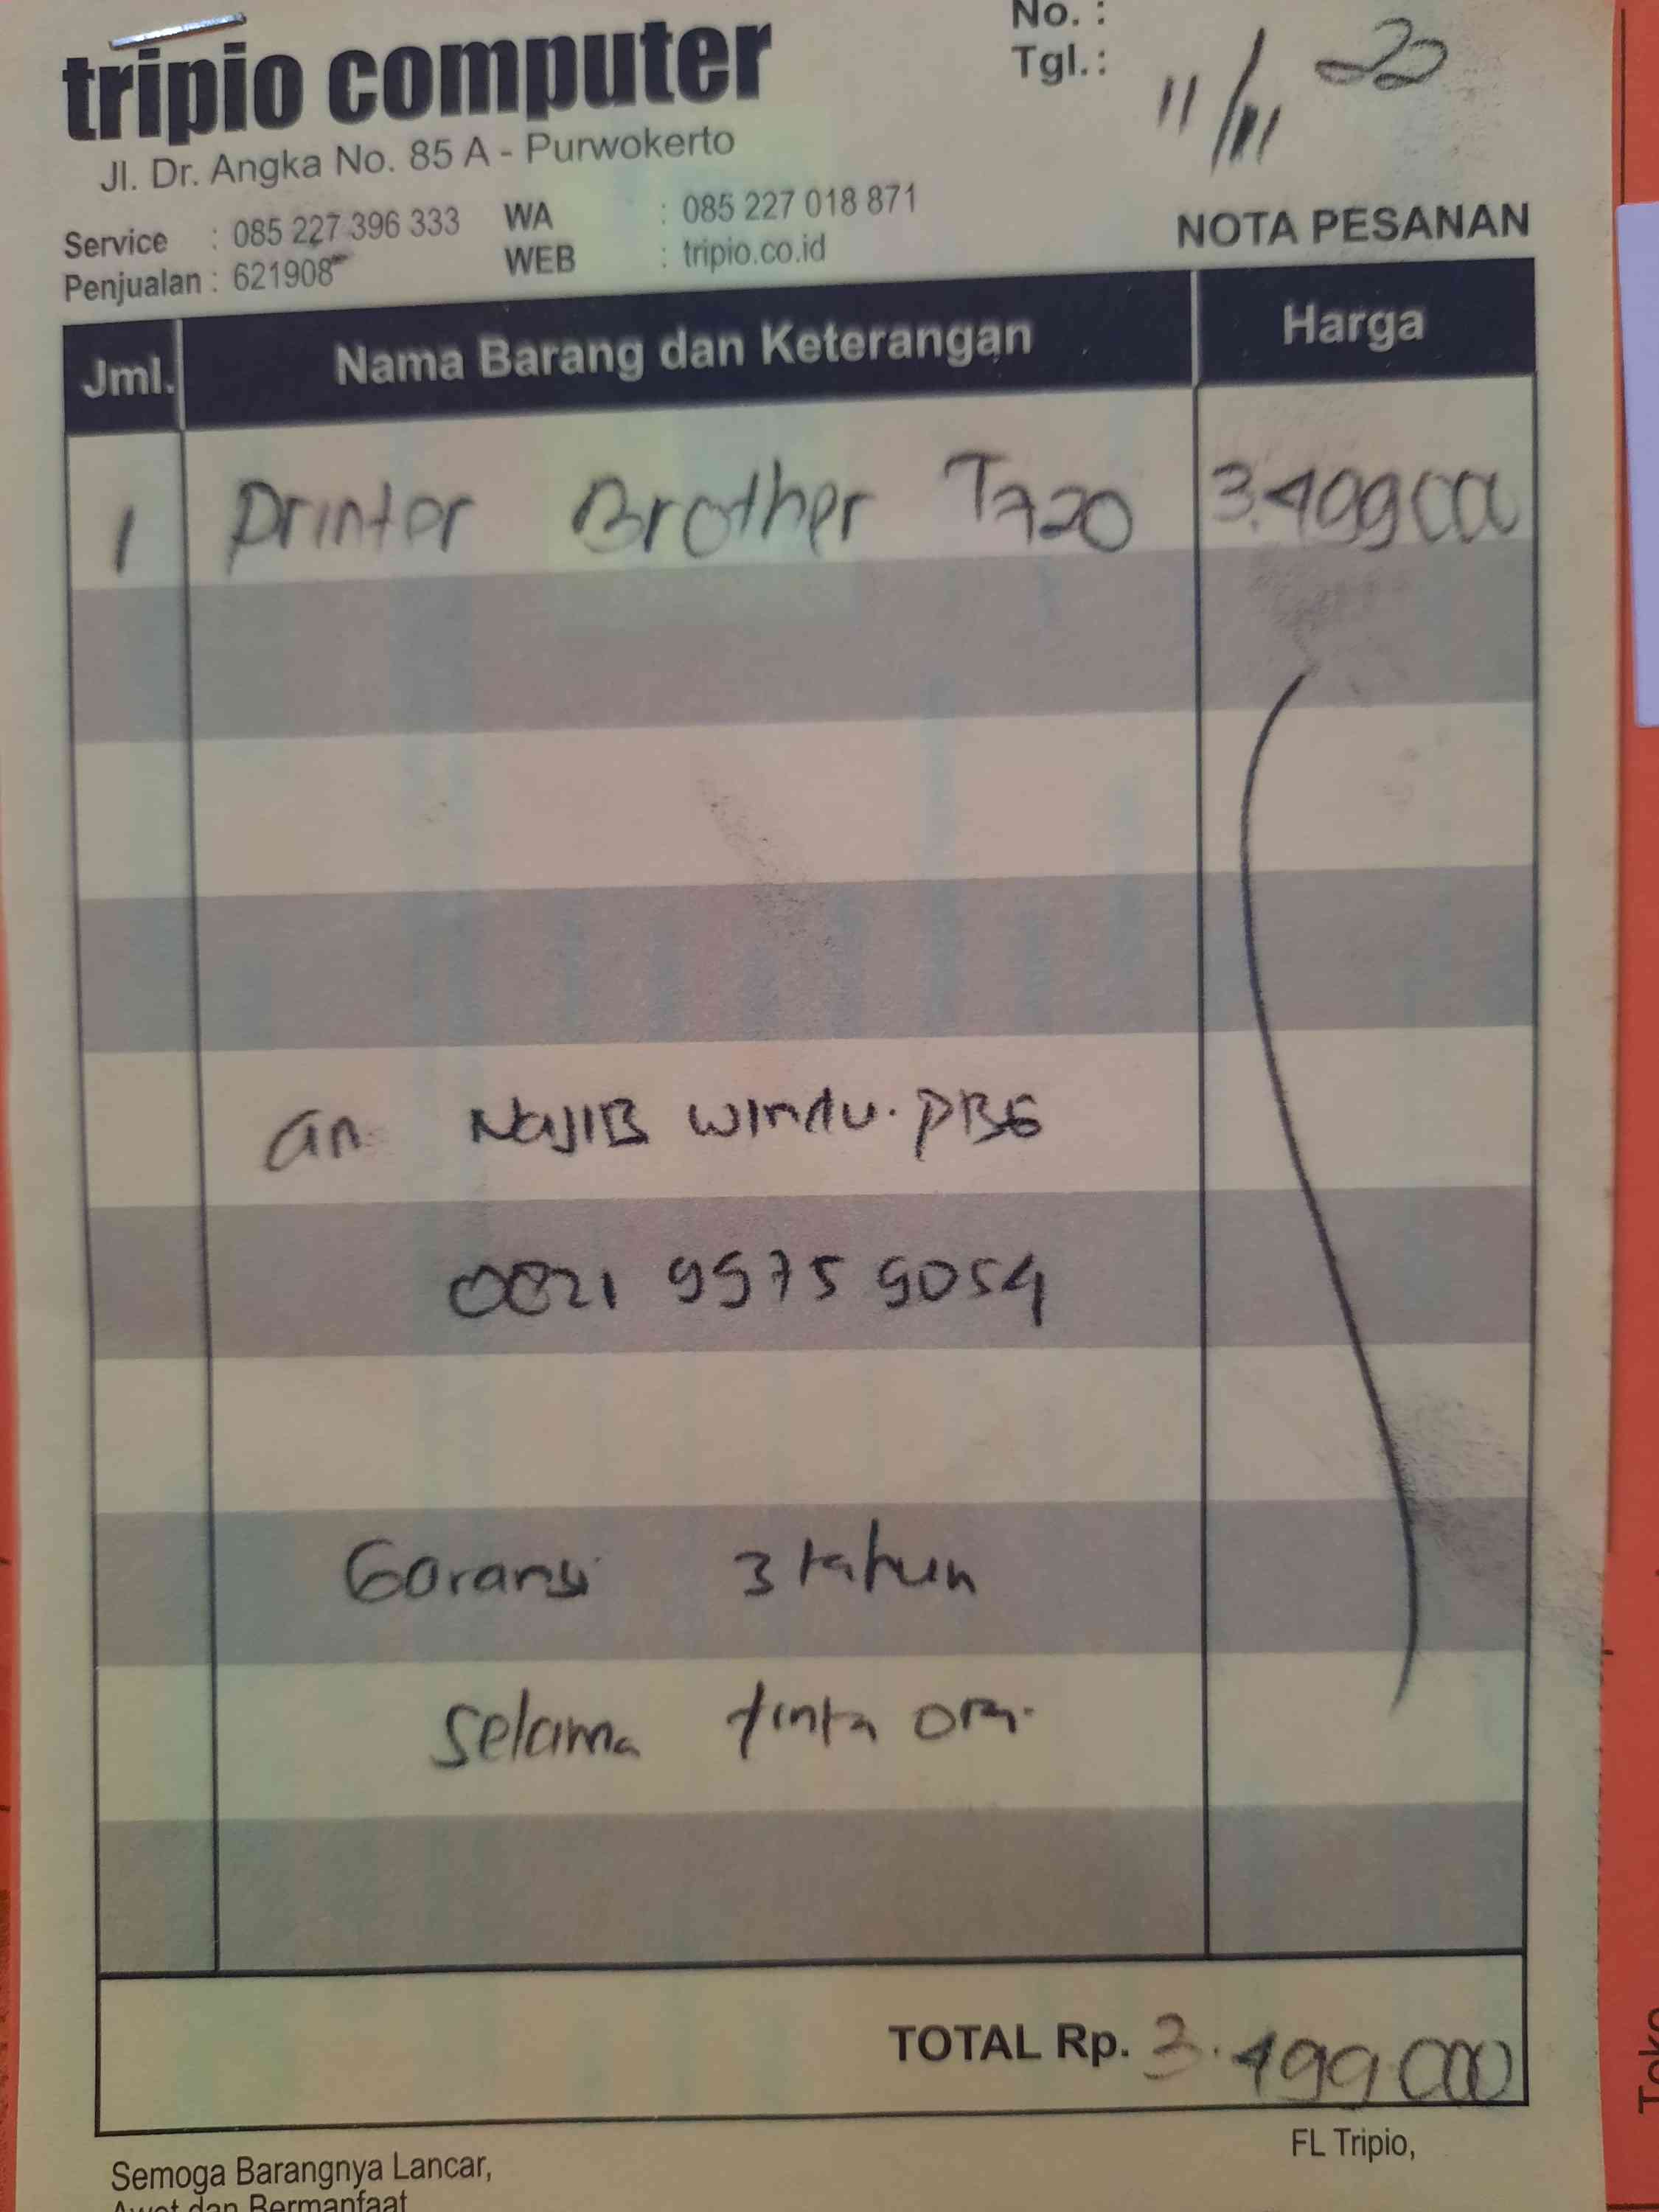 No. :
tripio computer
Tgl. : 11/11 22
Jl. Dr. Angka No. 85 A - Purwokerto
Service : 085 227 396 333 WA : 085 227 018 871
Penjualan : 621908 WEB : tripio.co.id
NOTA PESANAN
Jml. Nama Barang dan Keterangan Harga
1 Printer Brother T720 3.499000
an Najib windu. PBG
0821 9975 9054
Garansi 3 tahun
Selama tinta ori.
TOTAL Rp. 3.499.000
FL Tripio,
Semoga Barangnya Lancar,
Awet dan Bermanfaat
Toko